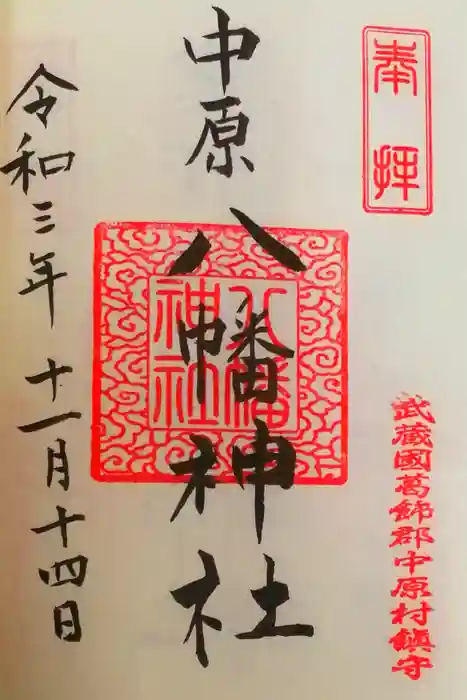 奉拝
武蔵國葛飾郡中原村鎮守
中原八幡神社
八幡神社
令和三年十一月十四日